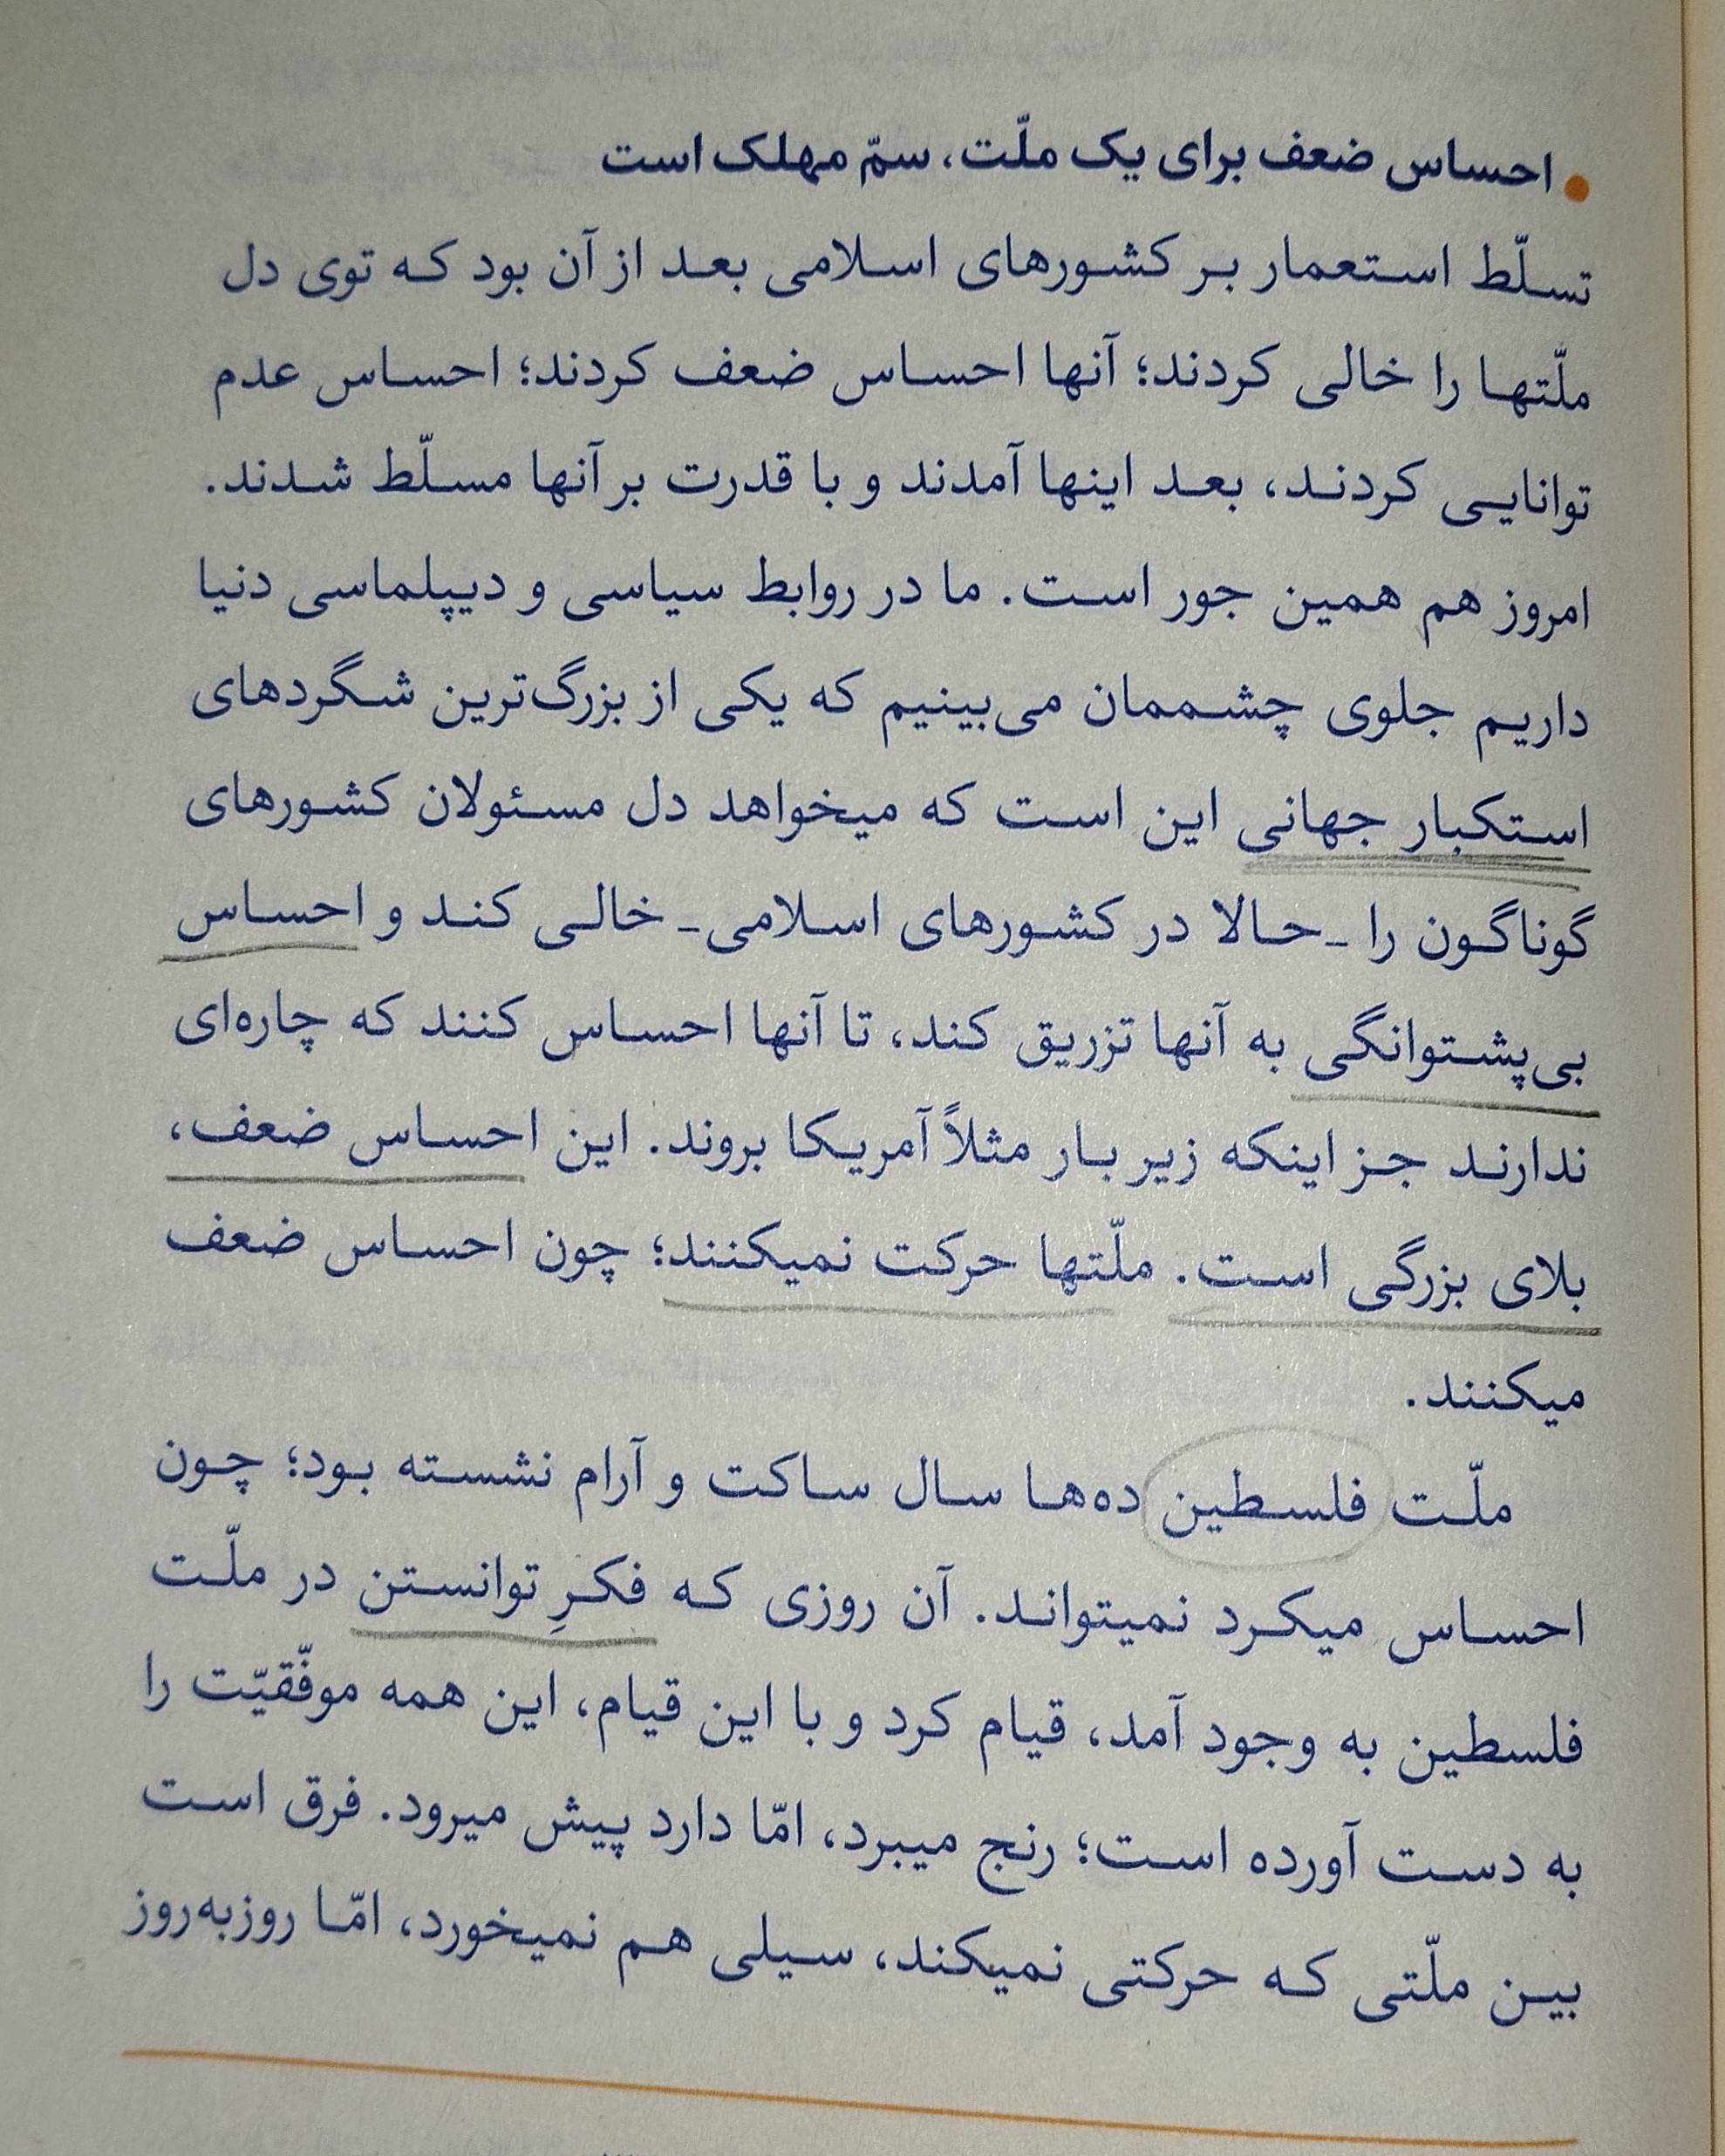 احساس ضعف برای یک ملّت، سمّ مهلک است
تسلّط استعمار بر کشورهای اسلامی بعد از آن بود که توی دل
ملّتها را خالی کردند؛ آنها احساس ضعف کردند؛ احساس عدم
توانایی کردند، بعد اینها آمدند و با قدرت بر آنها مسلّط شدند.
امروز هم همین جور است. ما در روابط سیاسی و دیپلماسی دنیا
داریم جلوی چشممان می‌بینیم که یکی از بزرگ‌ترین شگردهای
استکبار جهانی این است که میخواهد دل مسئولان کشورهای
گوناگون را ـ‌حالا در کشورهای اسلامی‌ـ خالی کند و احساس
بی‌پشتوانگی به آنها تزریق کند، تا آنها احساس کنند که چاره‌ای
ندارند جز اینکه زیر بار مثلاً آمریکا بروند. این احساس ضعف،
بلای بزرگی است. ملّتها حرکت نمیکنند؛ چون احساس ضعف
میکنند.
ملّت فلسطین ده‌ها سال ساکت و آرام نشسته بود؛ چون
احساس میکرد نمیتواند. آن روزی که فکرِ توانستن در ملّت
فلسطین به وجود آمد، قیام کرد و با این قیام، این همه موفّقیّت را
به دست آورده است؛ رنج میبرد، امّا دارد پیش میرود. فرق است
بین ملّتی که حرکتی نمیکند، سیلی هم نمیخورد، امّا روزبه‌روز